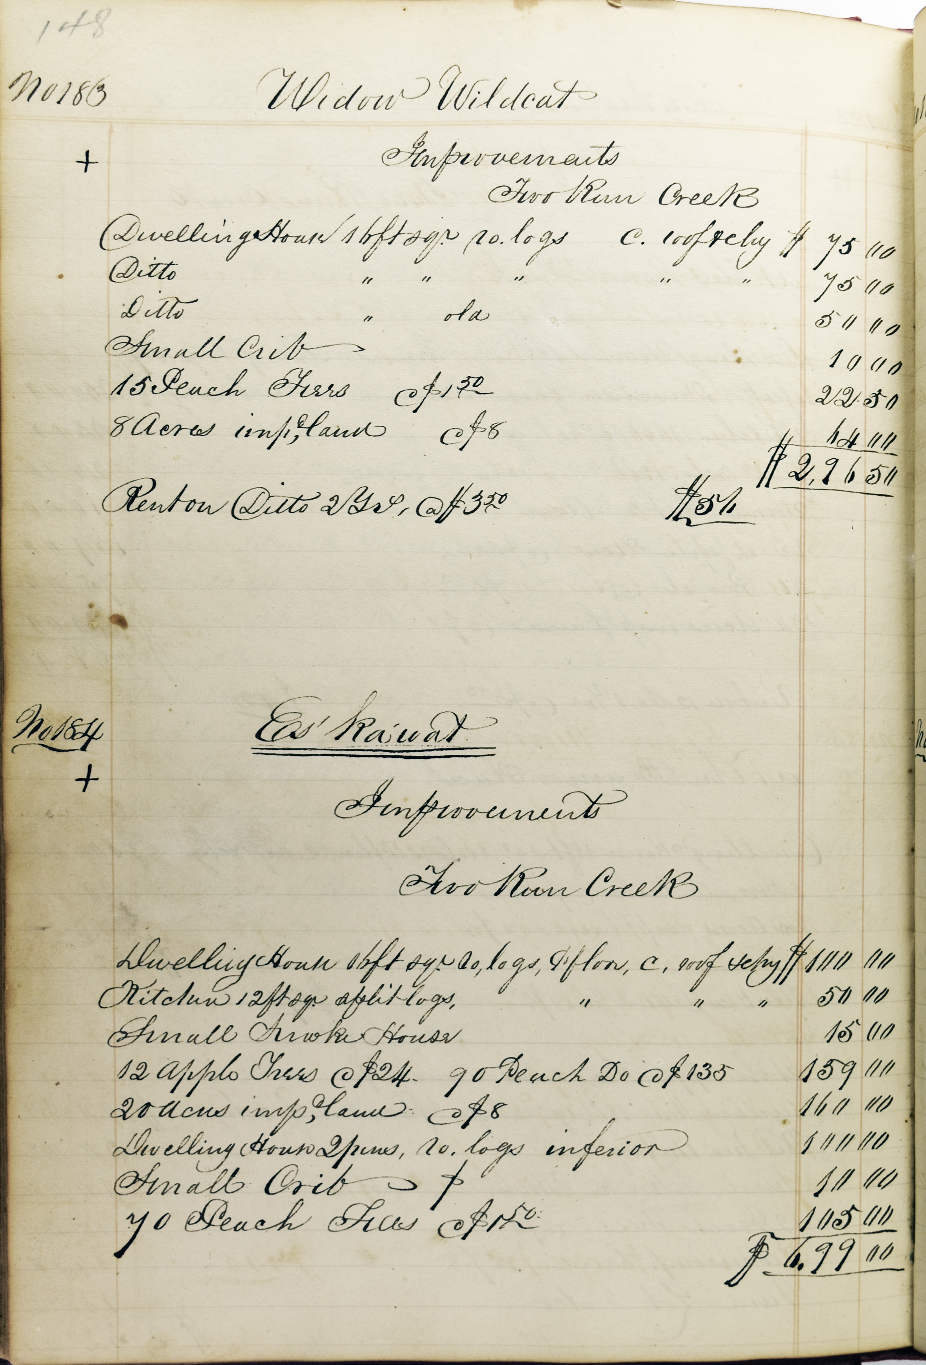 148
No 183 Widow Wildcat
+ Improvements
Two Run Creek
Dwelling House 16 ft sqr. ro. logs c. roof & chy $ 75 00
Ditto " " " " " 75 00
Ditto " old 50 00
Small Crib 10 00
15 Peach Trees @ $1 50 22 50
8 Acres imp,d land @ $8 64 00
$ 2,96 50
Rent on Ditto 2 Yrs, @ $3 50 $56
No 184 Es'ka'wat
+ Improvements
Two Run Creek
Dwelling House 16 ft sqr. ro, logs, P floor, c. roof & chy $ 100 00
Kitchen 12 ft sqr split logs, " " " 50 00
Small Smoke House 15 00
12 Apple Trees @ $24. 90 Peach Do @ $135 159 00
20 Acres imp,d land @ $8 160 00
Dwelling House 2 pens, ro. logs inferior 100 00
Small Crib 10 00
70 Peach Trees @ $1 50 105 00
$ 6,99 00